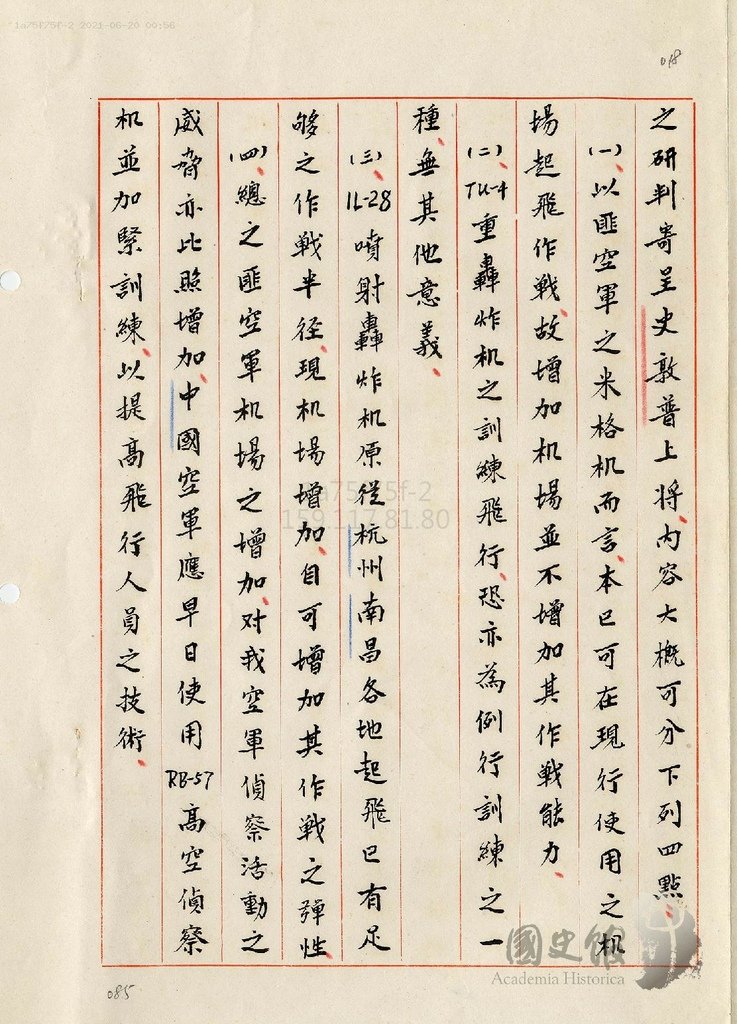 1a75f75f-2 2021-06-20 00:56
018
之研判寄呈史敦普上將、內容大概可分下列四點、
(一)、以匪空軍之米格机而言、本已可在現行使用之机
場起飛作战、故增加机場並不增加其作战能力、
(二)、TU-4重轟炸机之訓練飛行、恐亦為例行訓練之一
種、無其他意義、
(三)、IL-28噴射轟炸机原從杭州南昌各地起飛已有足
够之作战半径、現机場增加、自可增加其作战之弹性、
(四)、總之匪空軍机場之增加、对我空軍偵察活動之
威脅亦比照增加、中國空軍應早日使用RB-57高空偵察
机並加緊訓練、以提高飛行人員之技術、
1a75f75f-2
159.117.81.80
國史館
Academia Historica
085